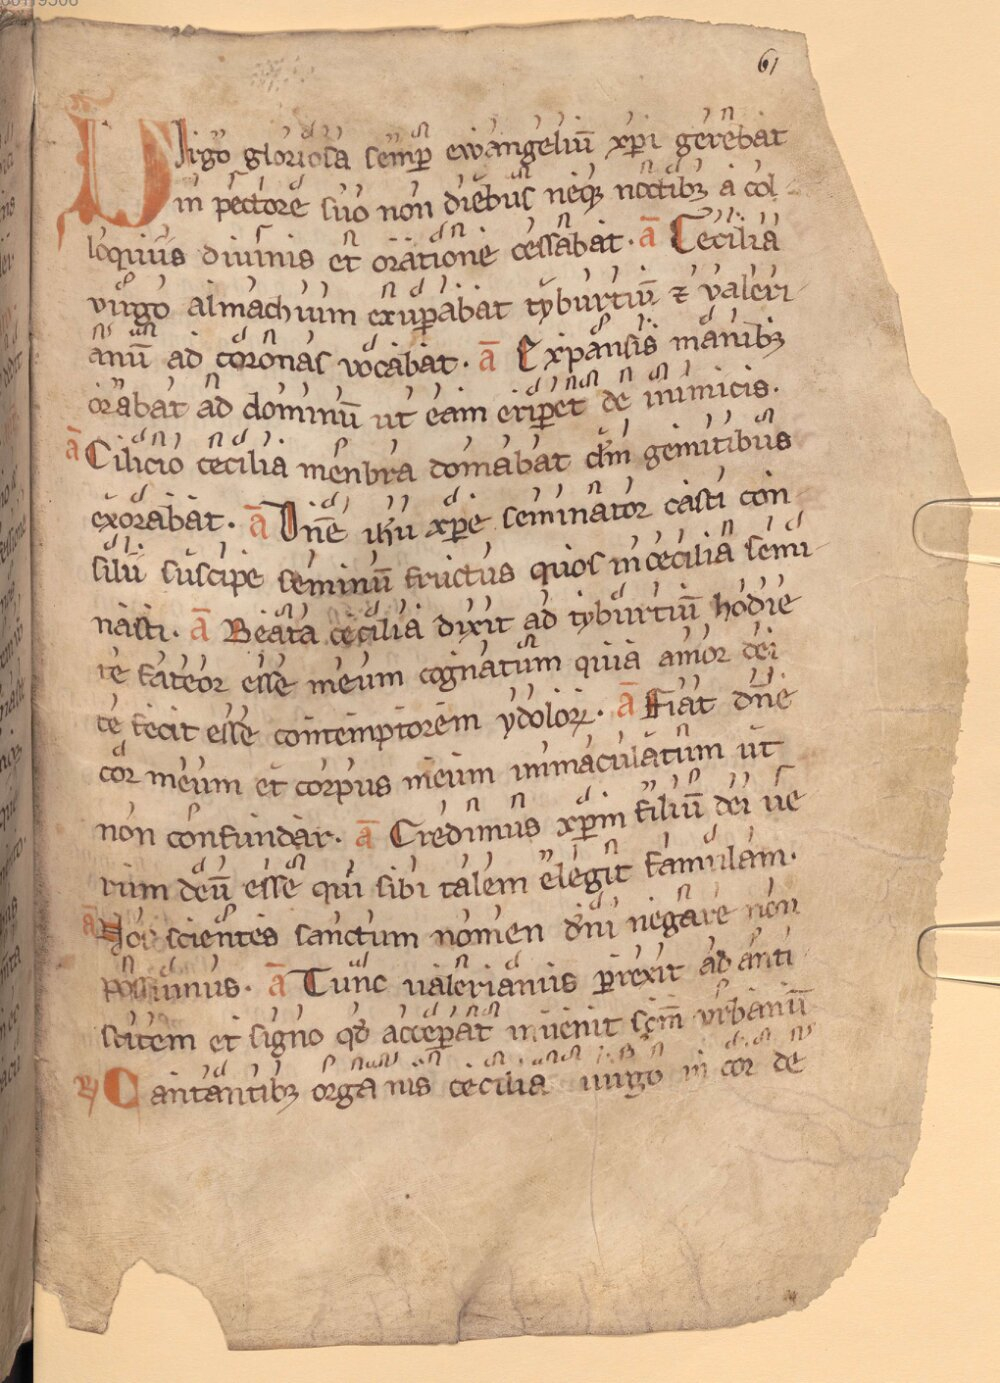 61
Virgo gloriosa semp̄ ewangeliū xp̄i gerebat
in pectore suo non diebus neqꝫ noctibꝫ a col-
loquiis diuinis et oratione cessabat. ā Cecilia
virgo almachium exuꝑabat tyburtiū ⁊ valeri-
anū ad coronas vocabat. ā Expansis manibꝫ
orabat ad dominū ut eam eriꝑet de inimicis.
ā Cilicio cecilia menbra domabat dm̄ gemitibus
exorabat. ā Dn̄e ihū xp̄e seminator casti con
silii suscipe seminū fructus quos in cecilia semi-
nasti. ā Beata cecilia dixit ad tyburtiū hodie
te fateor esse meum cognatum quia amor dei
te fecit esse contemptorem ydoloꝝ. ā Fiat dn̄e
cor meum et corpus meum immaculatum ut
non confundar. ā Credimus xp̄m filiū dei ue
rum deū esse qui sibi talem elegit famulam.
ā Nos scientes sanctum nomen dn̄i negare non
possumus. ā Tunc ualerianus ꝑrexit ad anti
stitem et signo qd̄ acceꝑat inuenit scm̄ vrbanū
℟ Cantantibꝫ organis cecilia uirgo in cor de